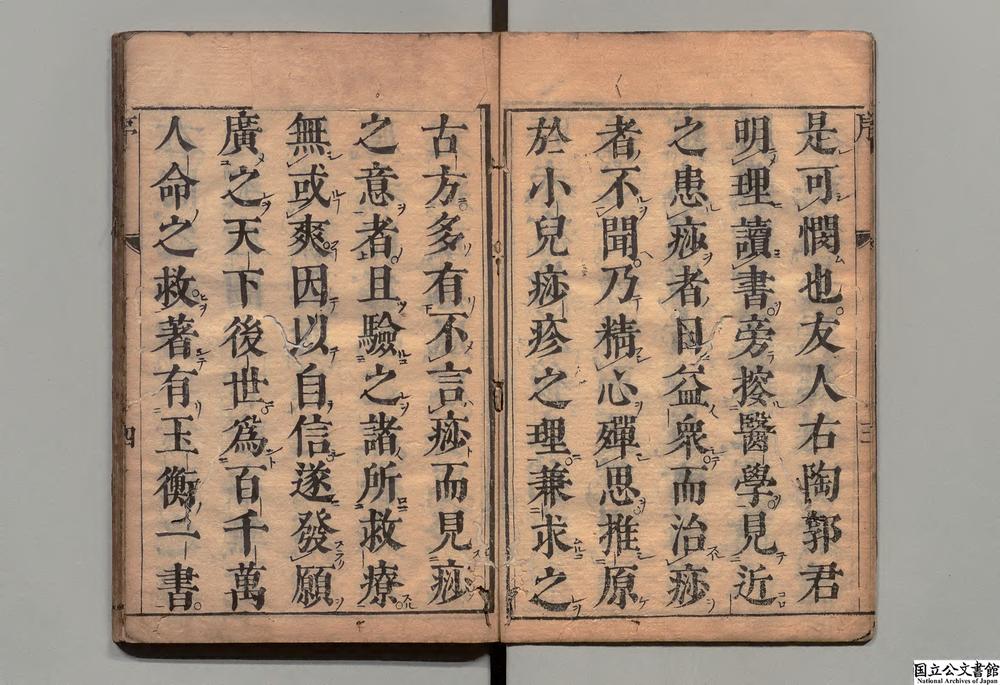 序
三
是可憫也友人右陶郭君
明理讀書旁按醫學見近
之患痧者日益衆而治痧
者不聞乃精心殫思推原
於小兒痧疹之理兼求之
古方多有不言痧而見痧
之意者且驗之諸所救療
無或爽因以自信遂發願
廣之天下後世爲百千萬
人命之救著有玉衡一書
序
四
国立公文書館
National Archives of Japan